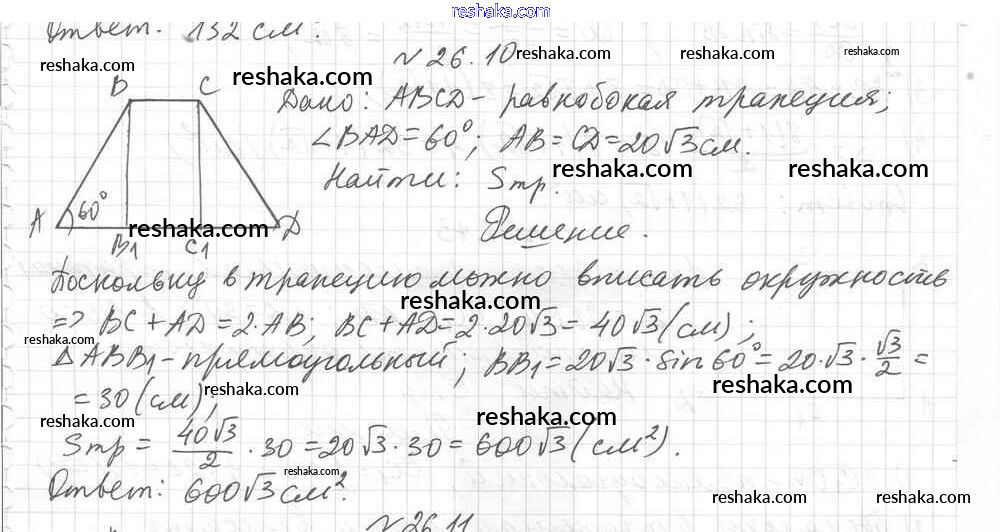 reshaka.com
Ответ. 132 см.
reshaka.com reshaka.com reshaka.com
№ 26.10
reshaka.com
B C Дано: ABCD - равнобокая трапеция;
reshaka.com
∠BAD = 60°; AB = CD = 20√3 см.
Найти: Sтр. reshaka.com reshaka.com
A 60° B1 C1 D reshaka.com Решение.
Поскольку в трапецию можно вписать окружность
reshaka.com
=> BC + AD = 2·AB; BC + AD = 2·20√3 = 40√3 (см);
reshaka.com
△ABB1 - прямоугольный; BB1 = 20√3 · sin 60° = 20·√3 · √3/2 =
reshaka.com reshaka.com
= 30 (см);
reshaka.com reshaka.com
Sтр = 40√3/2 · 30 = 20√3 · 30 = 600√3 (см²).
reshaka.com
Ответ: 600√3 см².
reshaka.com reshaka.com
№ 26.11